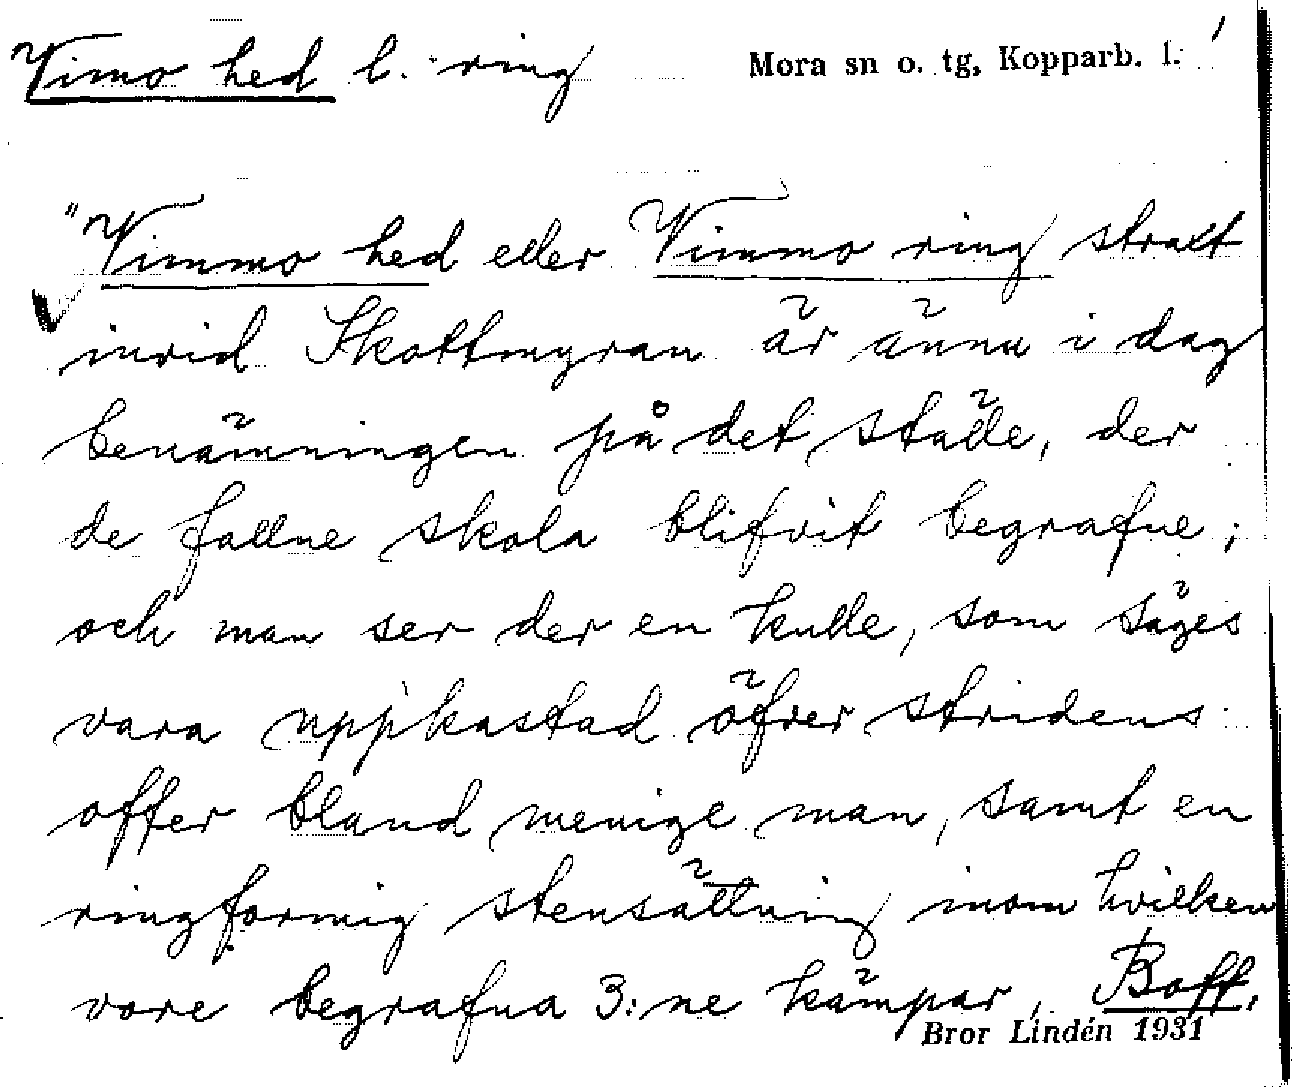 Vimo hed l. ring
Mora sn o. tg, Kopparb. l.
"Vimmo hed eller Vimmo ring straxt
invid Skottmyran är ännu i dag
benämningen på det ställe, der
de fallne skola blifvit begrafne;
och man ser der en kulle, som säges
vara uppkastad öfver stridens
offer bland menige man, samt en
ringformig stensättning inom hvilken
vore begrafna 3:ne kämpar,
Boff.
Bror Lindén 1931